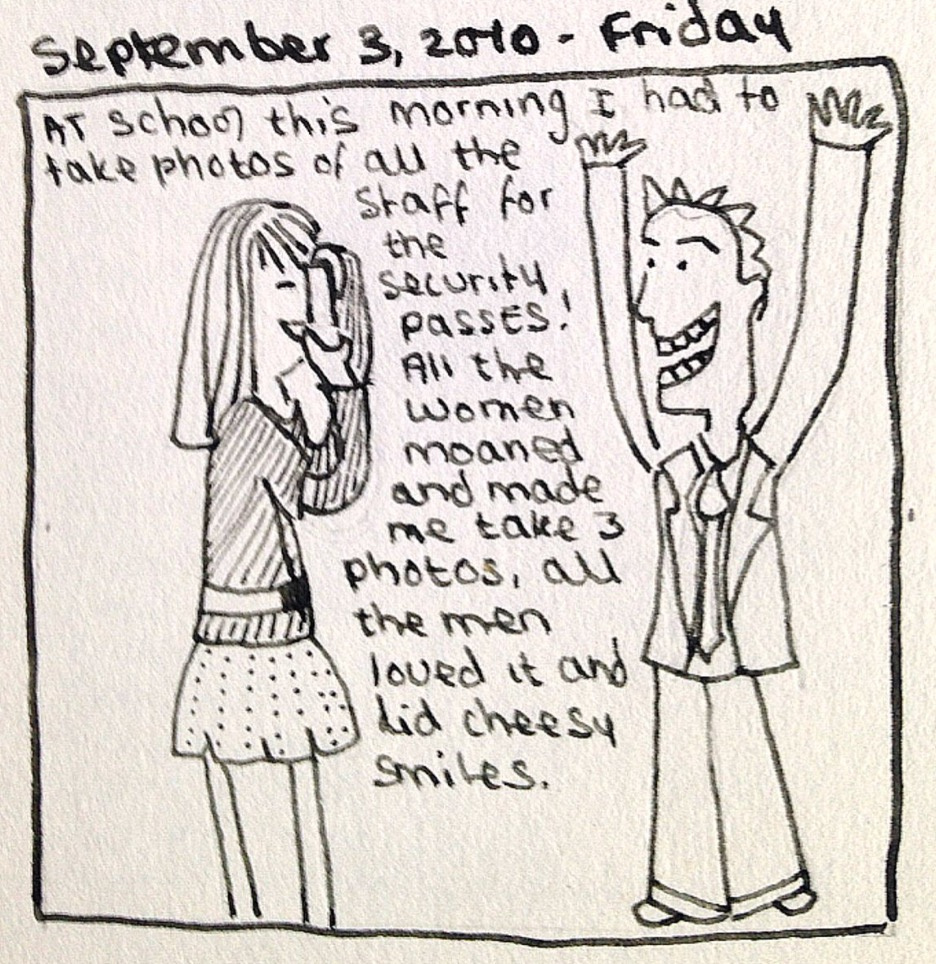 September 3, 2010 - Friday
At school this morning I had to
take photos of all the
staff for
the
security
passes!
All the
women
moaned
and made
me take 3
photos, all
the men
loved it and
did cheesy
smiles.